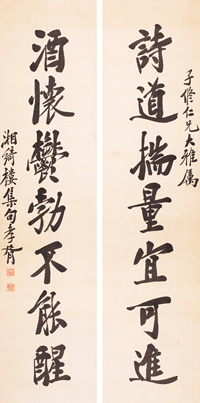 子修仁兄大雅屬
詩道揣量宜可進
酒懷鬱勃不能醒
湘綺樓集句孝胥